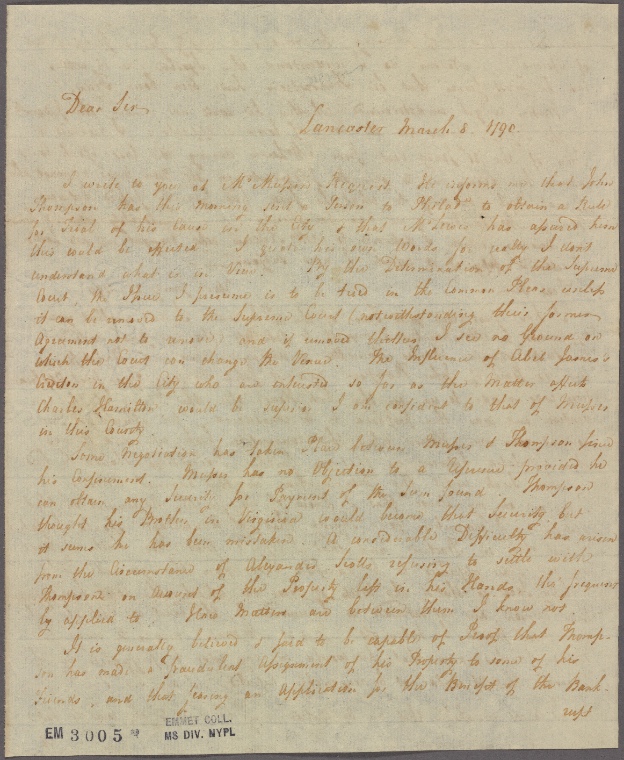 Dear Sir
Lancaster March 8. 1790.
I write to you at Mr Musser's Request. He informs me that John
Thompson has this morning sent a Person to Philada to obtain a Rule
for Trial of his Cause in the City & that Mr has assured him
this would be effected. I quote his own Words for really I dont
understand what is in View. By the Determination of the Supreme
Court, the Issue I presume is to be tried in the Common Pleas unless
it can be removed to the Supreme Court (notwithstanding their former
Agreement not to remove) and if removed thither, I see no Ground on
which the Court can change the Venue. The Influence of Abel James's
Creditors in the City who are interested so far as the Matter affects
Charles Hamilton would be superior I am confident to that of Musser
in this County.
Some Negotiation has taken Place between Musser & Thompson since
his Confinement. Musser has no Objection to a provided he
can obtain any Security for Payment of the Sum found. Thompson
thought his Brother in Virginia would become that Security but
it seems he has been mistaken. A considerable Difficulty has arisen
from the Circumstance of Alexander Scotts refusing to settle with
Thompson on Account of the Property left in his Hands, tho' frequent
ly applied to. How Matters are between them I know not.
It is generally believed & said to be capable of Proof that Thomp-
son has made a fraudulent Assignment of his Property to some of his
Friends, and that fearing an Application for the Benefit of the Bank-
rupt
EM 3005
EMMET COLL.
MS DIV. NYPL